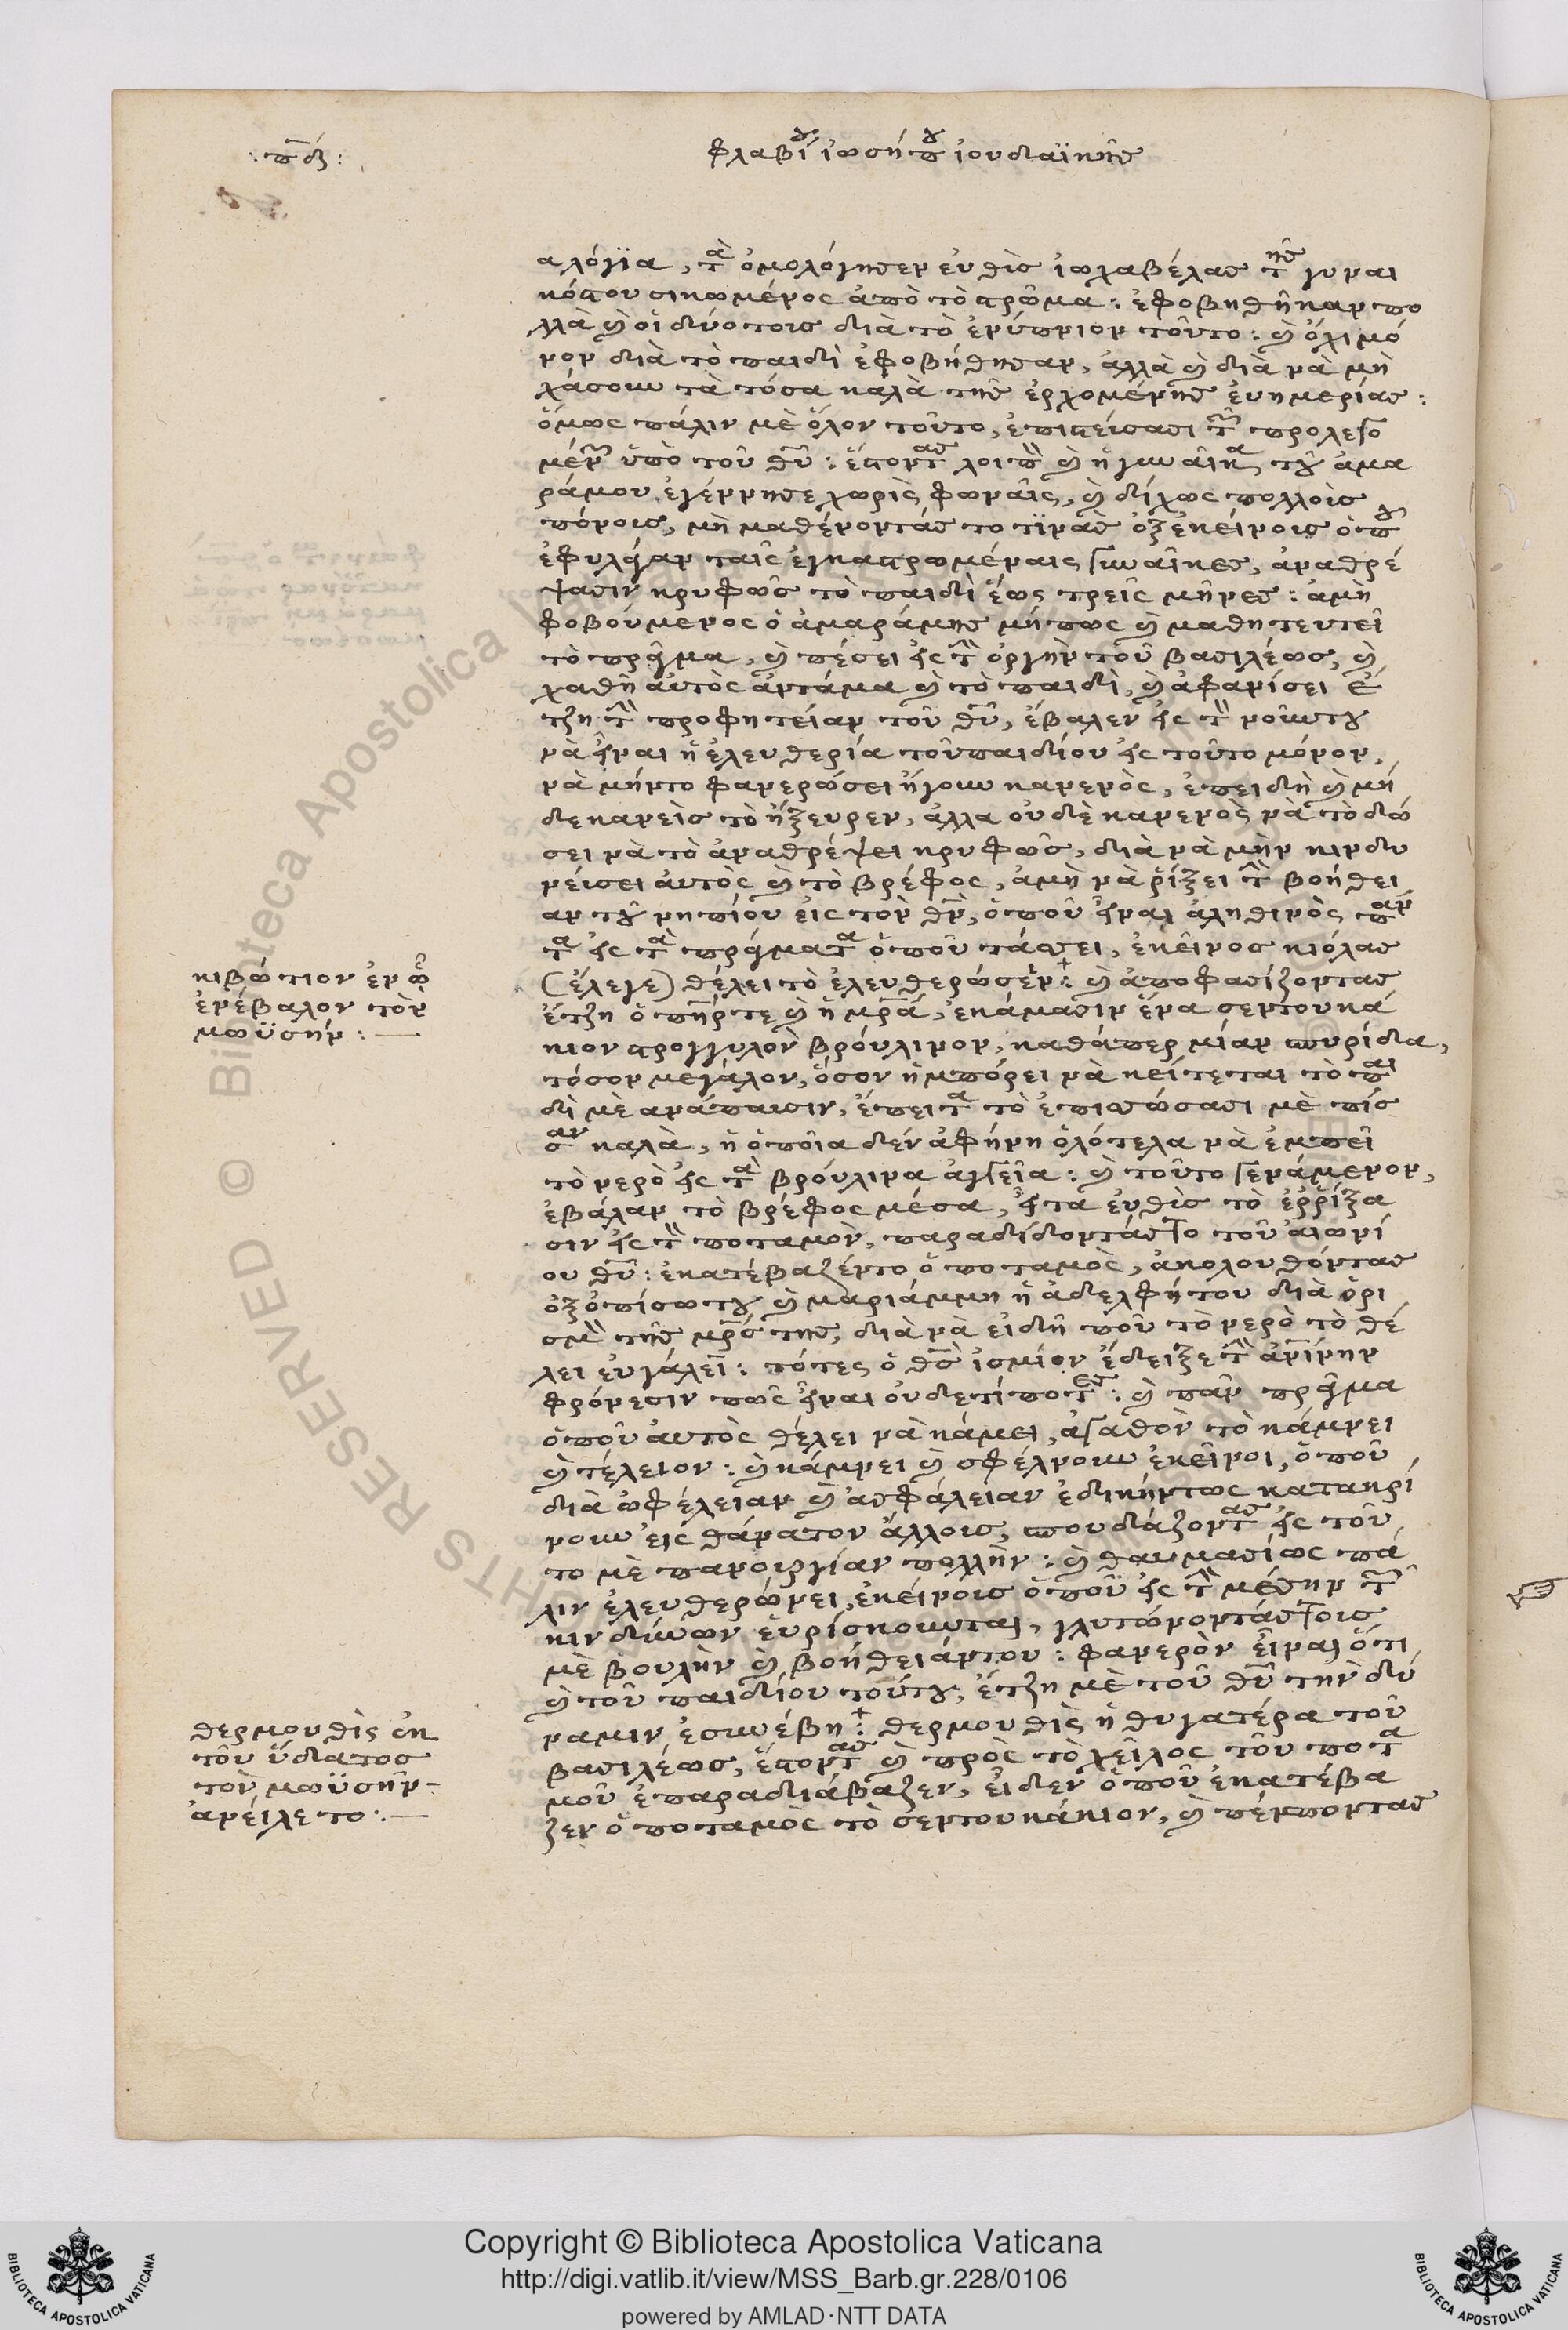 : πδ :
φλαβίου ἰωσήπου ἰουδαϊκῆς
αλόγϊα, τὰ ὁμολόγησεν εὐθὺς ἰωχαβέλας τῆς γυναι
κός του σικωμένος ἀπὸ τὸ στρῶμα : ἐφοβηθῆκαν πο
λλὰ καὶ οἱ δύο τους διὰ τὸ ἐνύπνιον τοῦτο : καὶ ὄχι μό
νον διὰ τὸ παιδὶ ἐφοβήθησαν, ἀλλὰ καὶ διὰ νὰ μὴ
χάσουν τὰ τόσα καλὰ τῆς ἐρχομένης εὐημερίας :
ὅμως πάλιν μὲ ὅλον τοῦτο, ἐπιστεύσασι τῶν προλεγο
μένων ὑπὸ τοῦ θυ : ἔστοντας λοιπὸν καὶ ἡ γυναῖκα του ἀμα
ράμου ἐγέννησε χωρὶς φωναῖς, καὶ δίχως πολλοὺς
πόνους, μὴ μαθένοντάς το τϊνὰς ὀξεκείνους ὁποῦ
ἐφυλάγαν ταῖς ἐγκαστρωμέναις γυναῖκες, ἀναθρέ
ψασιν κρυφῶς τὸ παιδὶ ἕως τρεῖς μῆνες : ἀμὴ
φοβούμενος ὁ ἀμαράμης μήπως καὶ μαθητευτεῖ
τὸ πρᾶγμα, καὶ πέσει εἰς τὴν ὀργὴν τοῦ βασιλέως, καὶ
χαθῆ αὐτὸς ἀντάμα καὶ τὸ παιδὶ, καὶ ἀφανίσει ἔ
τζη τὴν προφητείαν τοῦ θυ, ἔβαλεν εἰς τὸν νοῦν του
νὰ εἶναι ἡ ἐλευθερία τοῦ παιδίου εἰς τοῦτο μόνον,
νὰ μήντο φανερώσει ἤγουν κανενὸς, ἐπειδὴ καὶ μή
δε κανεὶς τὸ ἤξευρεν, ἀλλα οὐδὲ κανενὸς νὰ τὸ δώ
σει νὰ τὸ ἀναθρέψει κρυφῶς, διὰ νὰ μὴν κινδυ
νεύσει αὐτὸς καὶ τὸ βρέφος, ἀμὴ νὰ ῥίξει τὴν βοήθει
αν του νηπίου εἰς τὸν θν, ὁποῦ εἶναι ἀληθινὸς πάν
τα εἰς τὰ πράγματα ὁποῦ τάσσει, ἐκεῖνος κιόλας
(ἔλεγε) θέλει τὸ ἐλευθερώσειν : καὶ ἀποφασίζοντας
ἔτζη ὁ πηρ τε καὶ ἡ μρα, ἐκάμασιν ἕνα σεντουκά
κιον στρογγυλὸν βρούλινον, καθάπερ μίαν σπυρίδα,
τόσον μεγάλον, ὅσον ἠμπόρει νὰ κείτεται τὸ παι
δὶ μὲ ανάπαυσιν, ἔπειτα τὸ ἐπισσώσασι μὲ πίσ
σαν καλὰ, ἡ ὁποῖα δὲν ἀφήνη ὁλότελα νὰ ἐμπεῖ
τὸ νερὸ εἰς τὰ βρούλινα ἀγγεῖα : καὶ τοῦτο γενάμενον,
ἐβάλαν τὸ βρέφος μέσα, εἶτα εὐθὺς τὸ ἐρρίξα
σιν εἰς τὸν ποταμὸν, παραδίδοντάς το τοῦ αἰωνί
ου θυ : ἐκατέβαζέντο ὁ ποταμὸς, ἀκολουθόντας
ὀξοπίσωτου καὶ μαριάμμη ἡ ἀδελφήτου διὰ ὁρι
σμὸν τῆς μρς της, διὰ νὰ εἰδῆ ποῦ τὸ νερὸ τὸ θέ
λει εὐγάλει : τότες ὁ θς ἰσμίον ἔδειξε τὴν ἀνϊνην
φρόνεσιν πῶς εἶναι οὐδετίποτες : καὶ πᾶν πρᾶγμα
ὁποῦ αὐτὸς θέλει νὰ κάμει, ἀγαθὸν τὸ κάμνει
καὶ τέλειον : καὶ κάμνει καὶ σφέλνουν ἐκεῖνοι, ὁποῦ
διὰ ὠφέλειαν καὶ ἀσφάλειαν ἐδικήντως κατακρί
νουν εἰς θάνατον ἄλλους, σπουδάζοντας εἰς τοῦ
το μὲ πανουργίαν πολλὴν : καὶ θαυμασίως πά
λιν ἐλευθερώνει, ἐκείνους ὁποῦ εἰς τὴν μέσην τῶν
κινδύνων εὑρίσκουνται, γλυτώνοντάς τους
μὲ βουλὴν καὶ βοήθειάντου : φανερὸν εἶναι ὅτι
καὶ τοῦ παιδίου τούτου, ἔτζη μὲ τοῦ θυ τὴν δύ
ναμιν ἐσυνέβη : θερμουθὶς ἡ θυγατέρα τοῦ
βασιλέως, ἔστοντας καὶ πρὸς τὸ χεῖλος τοῦ ποτα
μοῦ ἐπαραδιάβαζεν, εἶδεν ὁποῦ ἐκατέβα
ζεν ὁ ποταμὸς τὸ σεντουκάκιον, καὶ πέμποντας
κιβώτιον ἐν ᾧ
ἐνέβαλον τὸν
μωϋσήν : —
θερμουθὶς ἐκ
τοῦ ὕδατος
τὸν μωϋσῆν -
ἀνείλετο : —
Copyright © Biblioteca Apostolica Vaticana
http://digi.vatlib.it/view/MSS_Barb.gr.228/0106
powered by AMLAD·NTT DATA